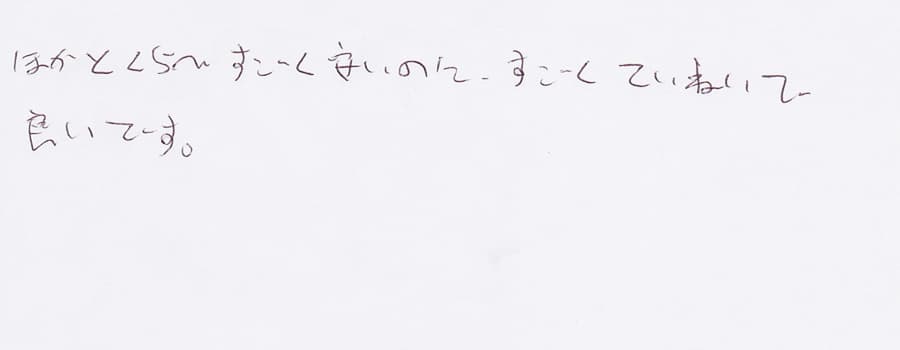 ほかとくらべすごーく安いのに、すごーくていねいで
良いです。